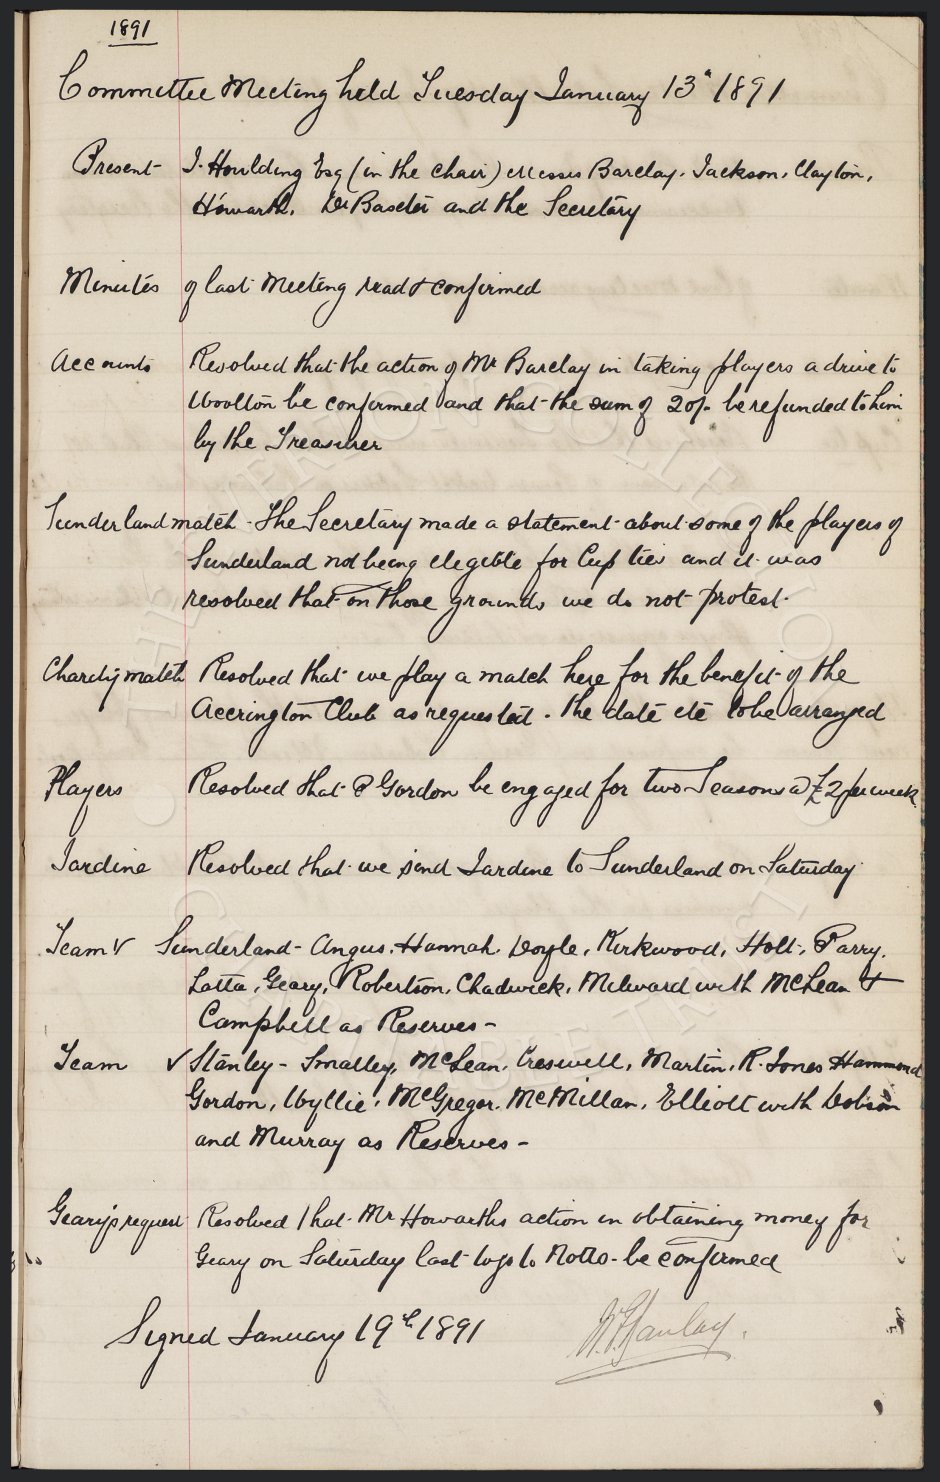 1891
Committee Meeting held Tuesday January 13th 1891
Present J. Houlding Esq (in the chair) Messrs Barclay, Jackson, Clayton,
Howarth, Dr Baxter and the Secretary
Minutes of last Meeting read & confirmed
Accounts Resolved that the action of Mr Barclay in taking players a drive to
Woolton be confirmed and that the sum of 20/- be refunded to him
by the Treasurer
Sunderland match - The Secretary made a statement about some of the players of
Sunderland not being elegible for Cup ties and it was
resolved that on those grounds we do not protest.
Charity match Resolved that we play a match here for the benefit of the
Accrington Club as requested. The date etc to be arranged
Players Resolved that P Gordon be engaged for two Seasons @ £2 per week
Jardine Resolved that we send Jardine to Sunderland on Saturday
Team V Sunderland - Angus, Hannah, Doyle, Kirkwood, Holt, Parry,
Latta, Geary, Robertson, Chadwick, Milward with McLean &
Campbell as Reserves -
Team V Stanley - Smalley, McLean, Creswell, Martin, R. Jones Hammond
Gordon, Wyllie, McGregor, McMillan, Elliott with Dobson
and Murray as Reserves -
Geary's request Resolved that Mr Howarths action in obtaining money for
Geary on Saturday last to go to Notts - be confirmed
Signed January 19th 1891